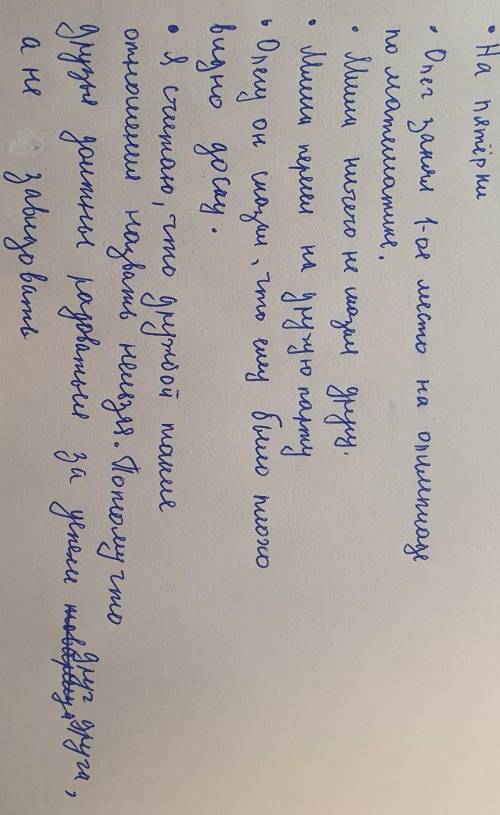 • На пятёрки
• Олег занял 1-ое место на олимпиаде
по математике.
• Миша ничего не сказал другу.
• Миша пересел на другую парту
• Олегу он сказал, что ему было плохо
видно доску.
• Я считаю, что дружбой такие
отношения назвать нельзя. Потому что
друзья должны радоваться за успехи друг друга,
а не завидовать